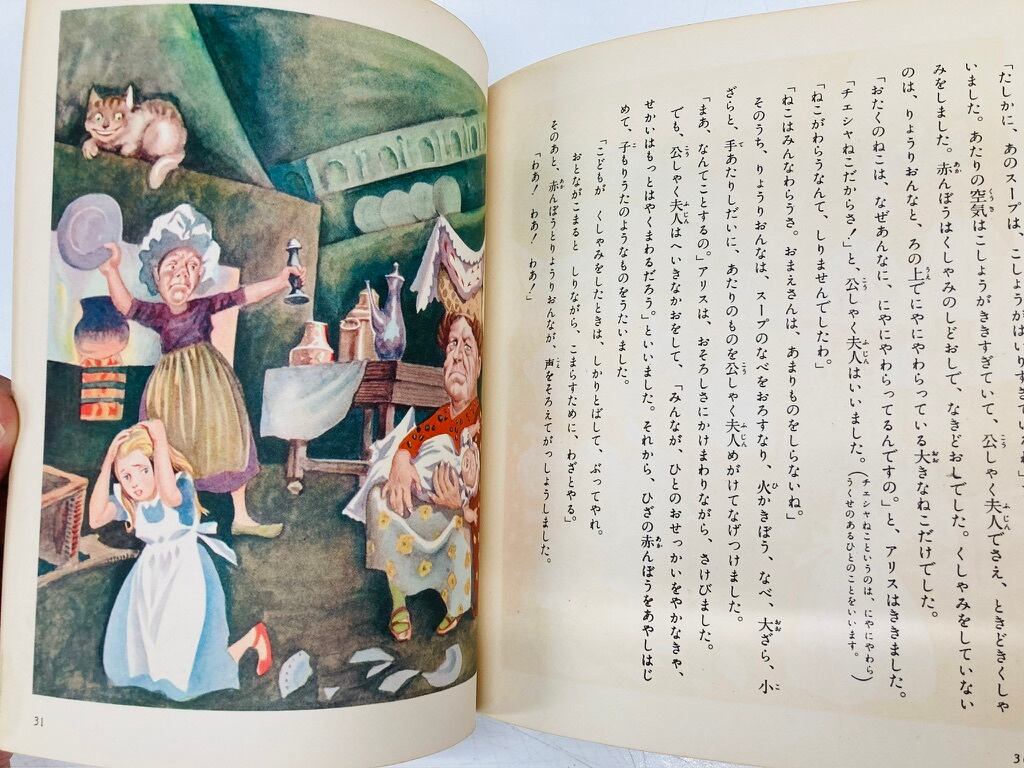 「たしかに、あのスープは、こしょうがはいりすぎているわ」
いました。あたりの空気はこしょうがききすぎていて、公しゃく夫人でさえ、ときどきくしゃ
みをしました。赤んぼうはくしゃみのしどおしで、なきどおしでした。くしゃみをしていない
のは、りょうりおんなと、ろの上でにやにやわらっている大きなねこだけでした。
「おたくのねこは、なぜあんなに、にやにやわらってるんですの。」と、アリスはききました。
「チェシャねこだからさ！」と、公しゃく夫人はいいました。（チェシャねこというのは、にやにやわら
うくせのあるひとのことをいいます。）
「ねこがわらうなんて、しりませんでしたわ。」
「ねこはみんなわらうさ。おまえさんは、あまりものをしらないね。」
そのうち、りょうりおんなは、スープのなべをおろすなり、火かきぼう、なべ、大ざら、小
ざらと、手あたりしだいに、あたりのものを公しゃく夫人めがけてなげつけました。
「まあ、なんてことするの。」アリスは、おそろしさにかけまわりながら、さけびました。
でも、公しゃく夫人はへいきなかおをして、「みんなが、ひとのおせっかいをやかなきゃ、
せかいはもっとはやくまわるだろう。」といいました。それから、ひざの赤んぼうをあやしはじ
めて、子もりうたのようなものをうたいました。
「こどもが　くしゃみをしたときは、しかりとばして、ぶってやれ。
おとながこまると　しりながら、こまらすために、わざとやる。」
そのあと、赤んぼうとりょうりおんなが、声をそろえてがっしょうしました。
「わあ！　わあ！　わあ！」
31